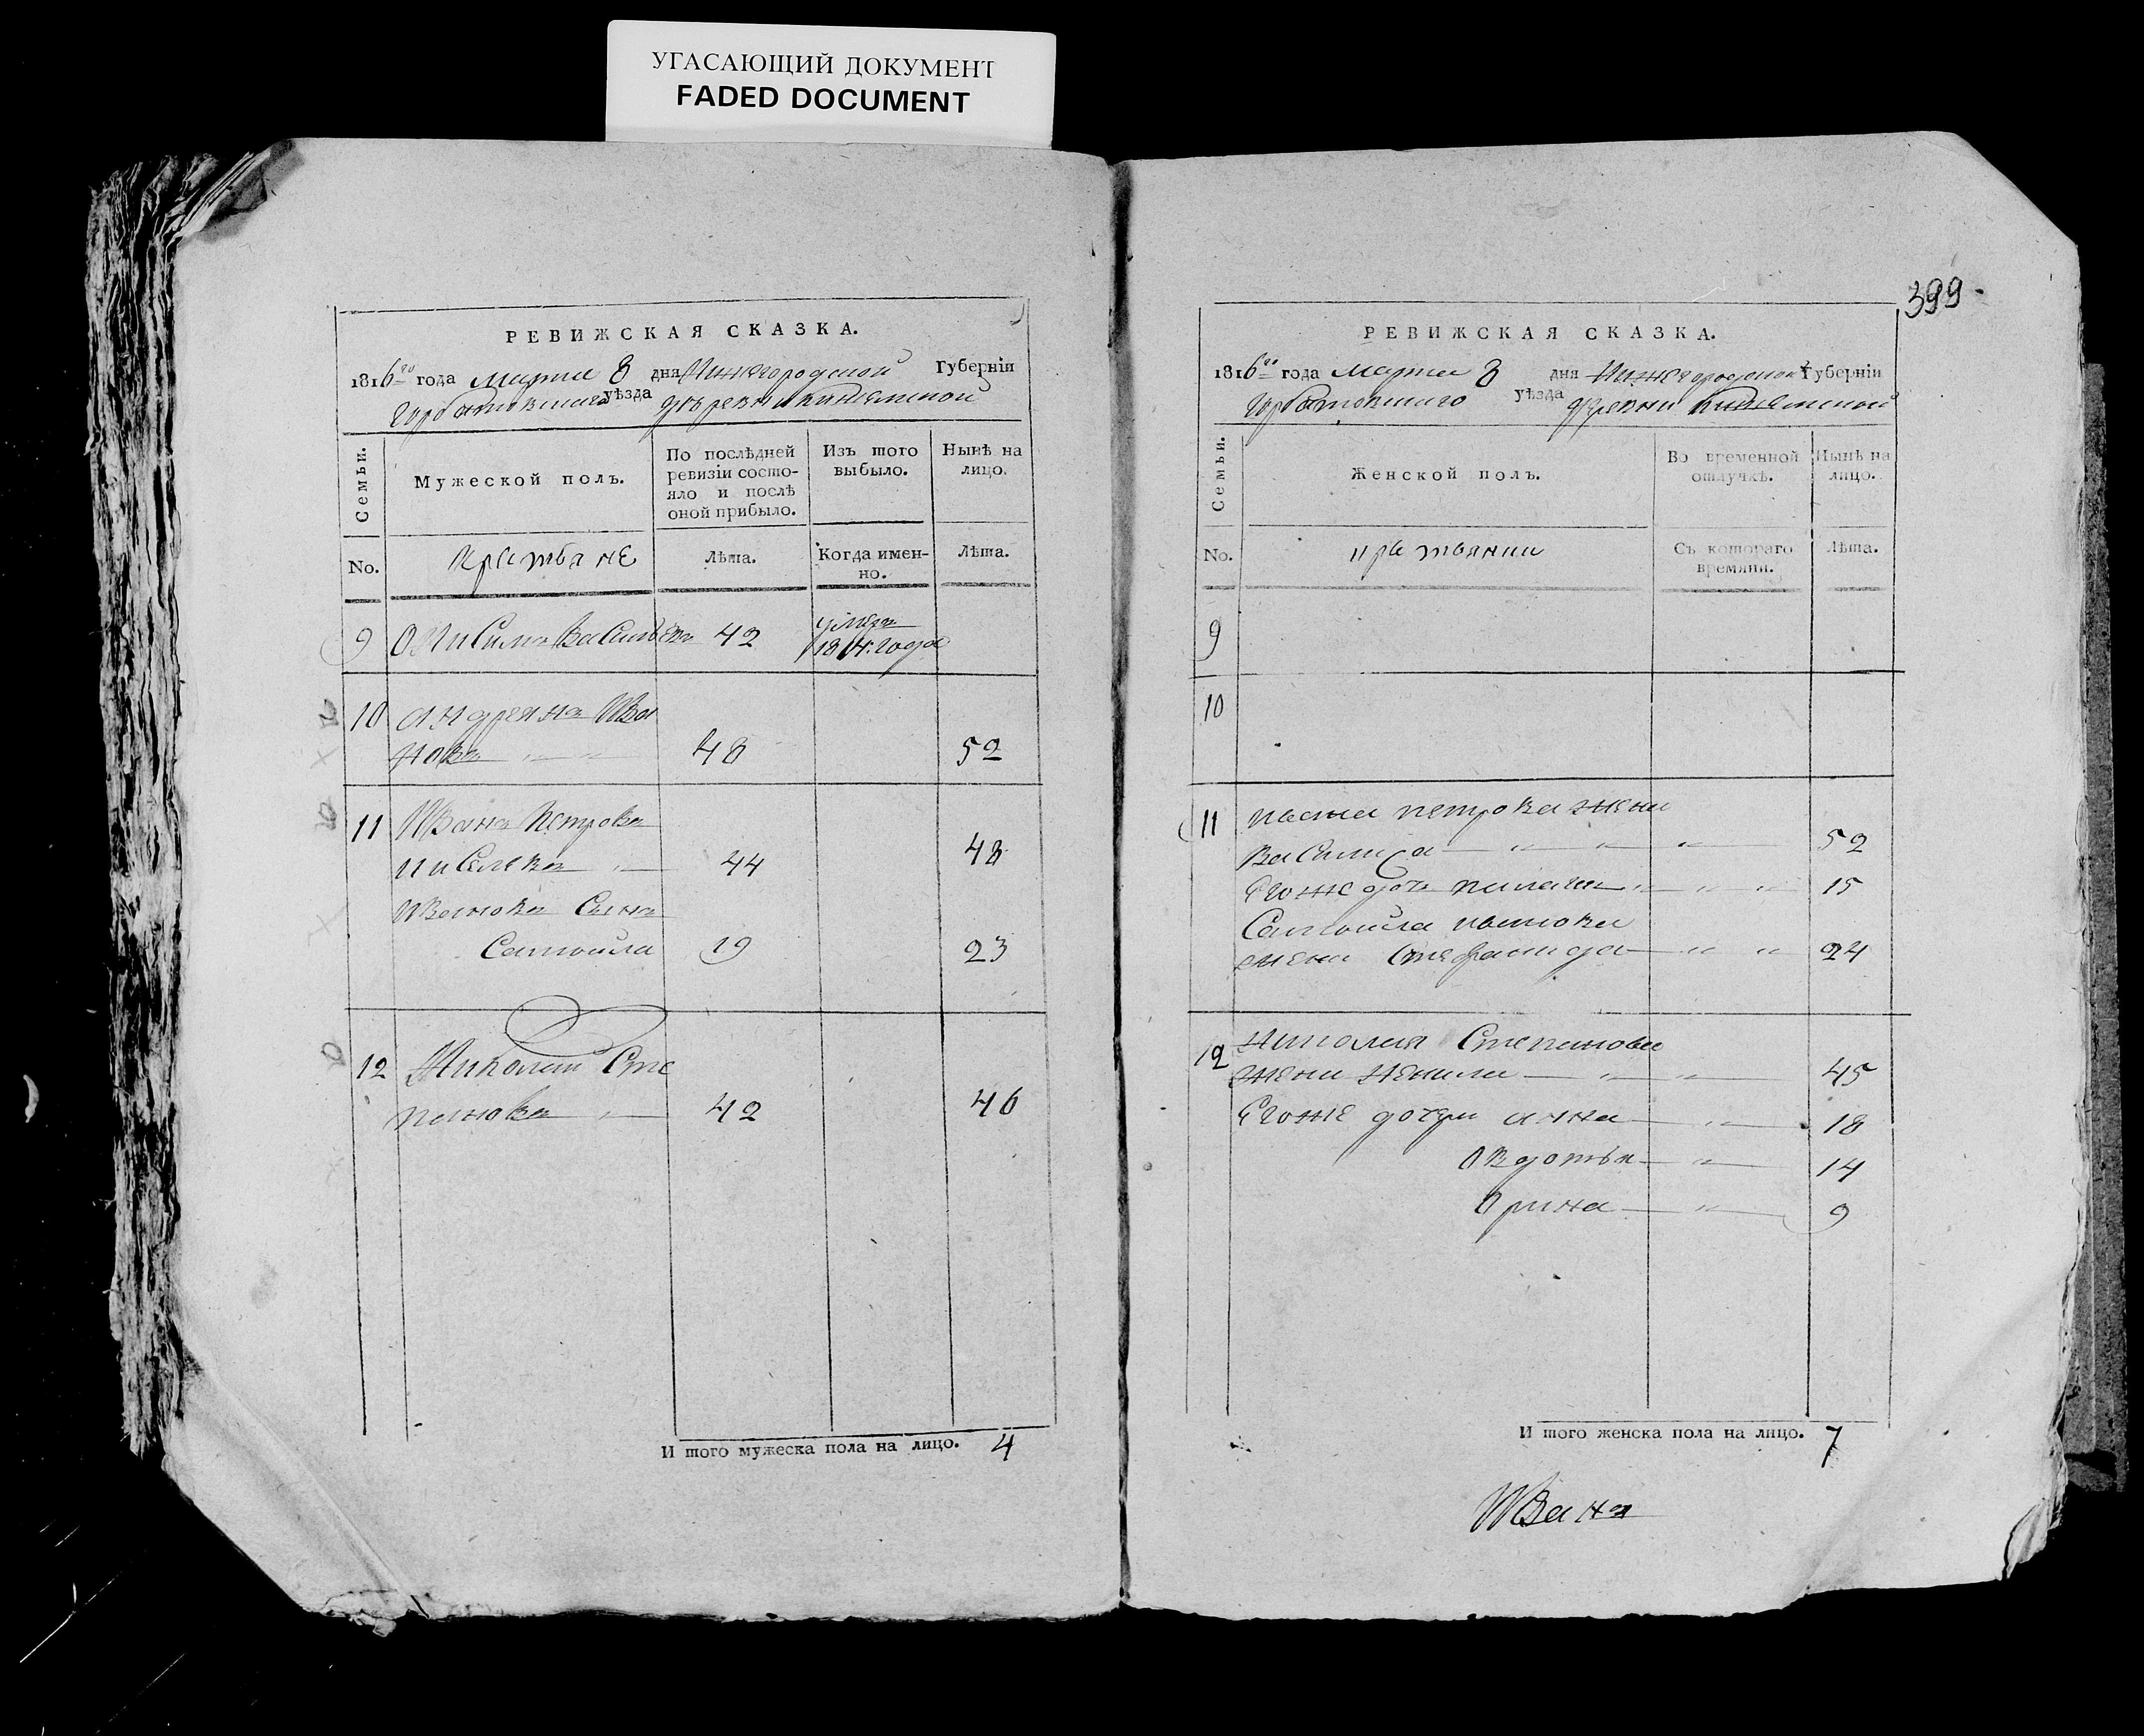 УГАСАЮЩИЙ ДОКУМЕНТ
FADED DOCUMENT
РЕВИЖСКАЯ СКАЗКА.
1816го года марта 8 дня Нижегородской Губерніи
Горбатовского уѣзда деревни
Семьи.
Мужеской полъ.
По послѣдней ревизіи состояло и послѣ оной прибыло.
Изъ того выбыло.
Нынѣ на лицо.
No.
крестьяне
Лѣта.
Когда именно.
Лѣта.
9 Онисимъ Васильевъ 42 умеръ 1814 года
10 Андреянъ Ива
новъ 48 52
11 Иванъ Петровъ
44 48
Ивановъ Сынъ
Самойла 19 23
12 Николай Сте
пановъ 42 46
И того мужеска пола на лицо. 4
399
РЕВИЖСКАЯ СКАЗКА.
1816го года марта 8 дня Нижегородской Губерніи
Горбатовского уѣзда деревни
Семьи.
Женской полъ.
Во временной отлучкѣ.
Нынѣ на лицо.
No.
Съ котораго времяни.
Лѣта.
9
10
11 Ивана Петрова жена
Василиса 52
Егоже дочь Пелагея 15
Самойла Иванова
жена Стефанида 24
12 Николая Степанова
жена Ненила 45
Егоже дочери Анна 18
Овдотья 14
Орина 9
И того женска пола на лицо. 7
Иванъ